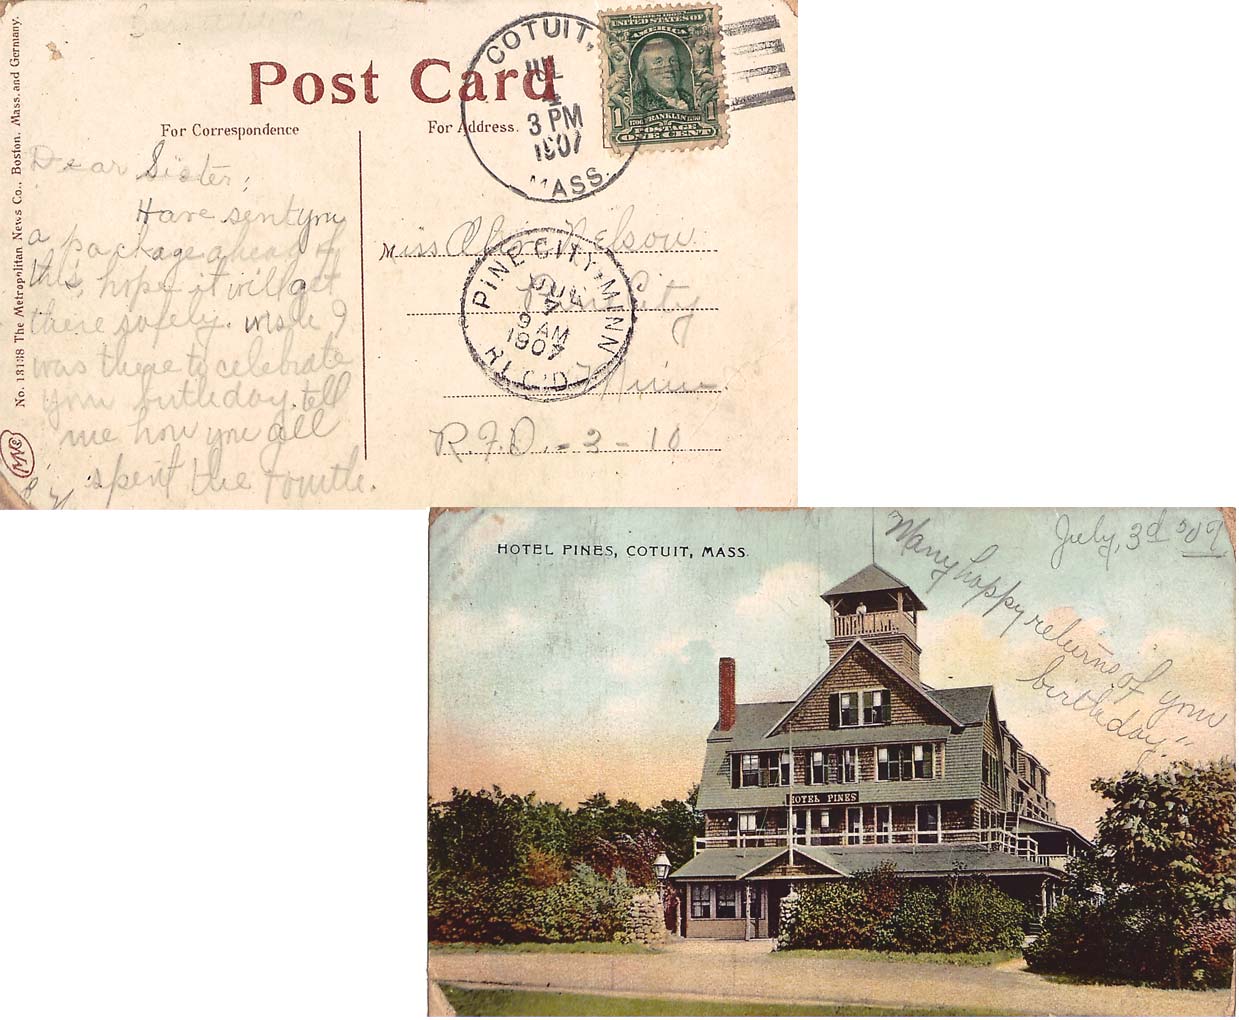 No. 13138 The Metropolitan News Co., Boston, Mass. and Germany.
Post Card
For Correspondence
For Address.
COTUIT,
JUL
4
3 PM
1907
MASS.
SERIES 1902
UNITED STATES OF
AMERICA
1 1
1706 FRANKLIN 1790
POSTAGE
ONE CENT
Dear Sister;
Have sent you
a package ahead of
this, hope it will get
there safely. wish I
was there to celebrate
your birthday, tell
me how you all
spent the Fourth.
Miss Nelson
Pine City
Minn.
R.F.D. - 3 - 10
PINE CITY, MINN
JUL
7
9 AM
1907
REC'D.
HOTEL PINES, COTUIT, MASS.
July, 3d 
Many happy returns of your
birthday."
HOTEL PINES